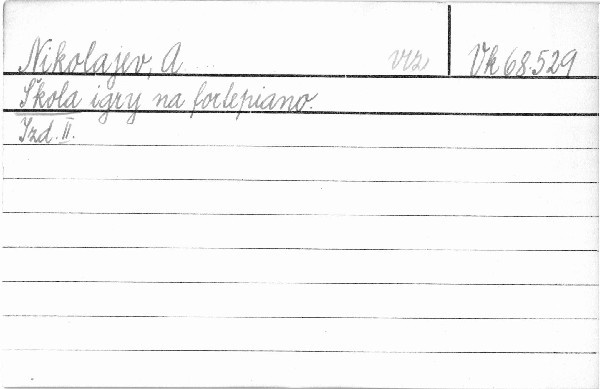 Nikolajev, A .... viz Vk 68.529
Škola igry na fortepiano.
Izd. II.